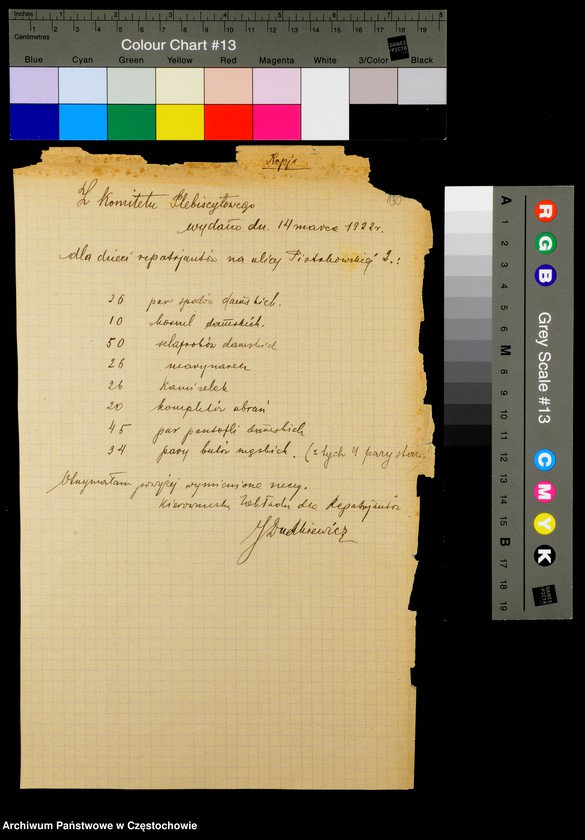 Inches 1 2 3 4 5 6 7 8
Centimetres 1 2 3 4 5 6 7 8 9 10 11 12 13 14 15 16 17 18 19
Colour Chart #13
DANES PICTA
Blue Cyan Green Yellow Red Magenta White 3/Color Black
Kopja
130
Z Komitetu Plebiscytowego
wydano dn. 14 marca 1922r.
dla dzieci repatrjantów na ulicy Piotrkowskiej 2.:
26 par spodni damskich.
10 koszul damskich.
50 szlafroków damskich
26 marynarek
26 kamizelek
20 kompletów ubrań
45 par pantofli damskich
34 pary butów męskich. (z tych 4 pary stare
Otrzymałam powyżej wymienione rzeczy.
Kierowniczka Zakładu dla Repatrjantów
J Dudkiewicz
A 1 2 3 4 5 6 M 8 9 10 11 12 13 14 15 B 17 18 19
R G B
Grey Scale #13
C M Y K
DANES PICTA
Archiwum Państwowe w Częstochowie